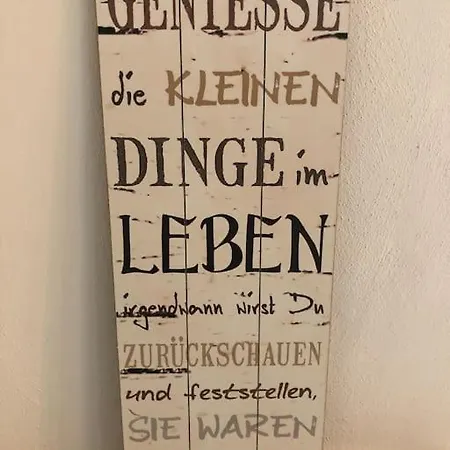 GENIESSE
die KLEINEN
DINGE im
LEBEN
irgendwann wirst Du
ZURÜCKSCHAUEN
und feststellen,
SIE WAREN